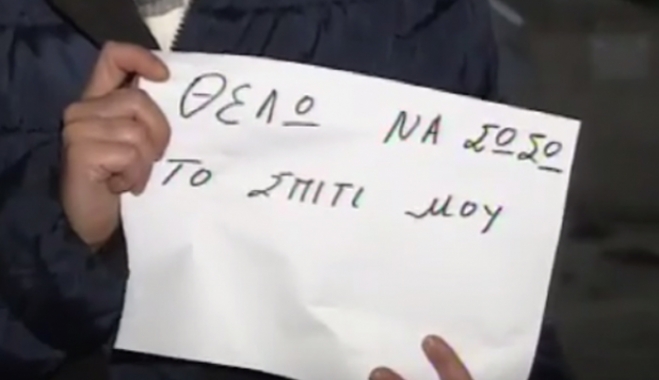 ΘΕΛΟ ΝΑ ΣΟΣΟ
ΤΟ ΣΠΙΤΙ ΜΟΥ